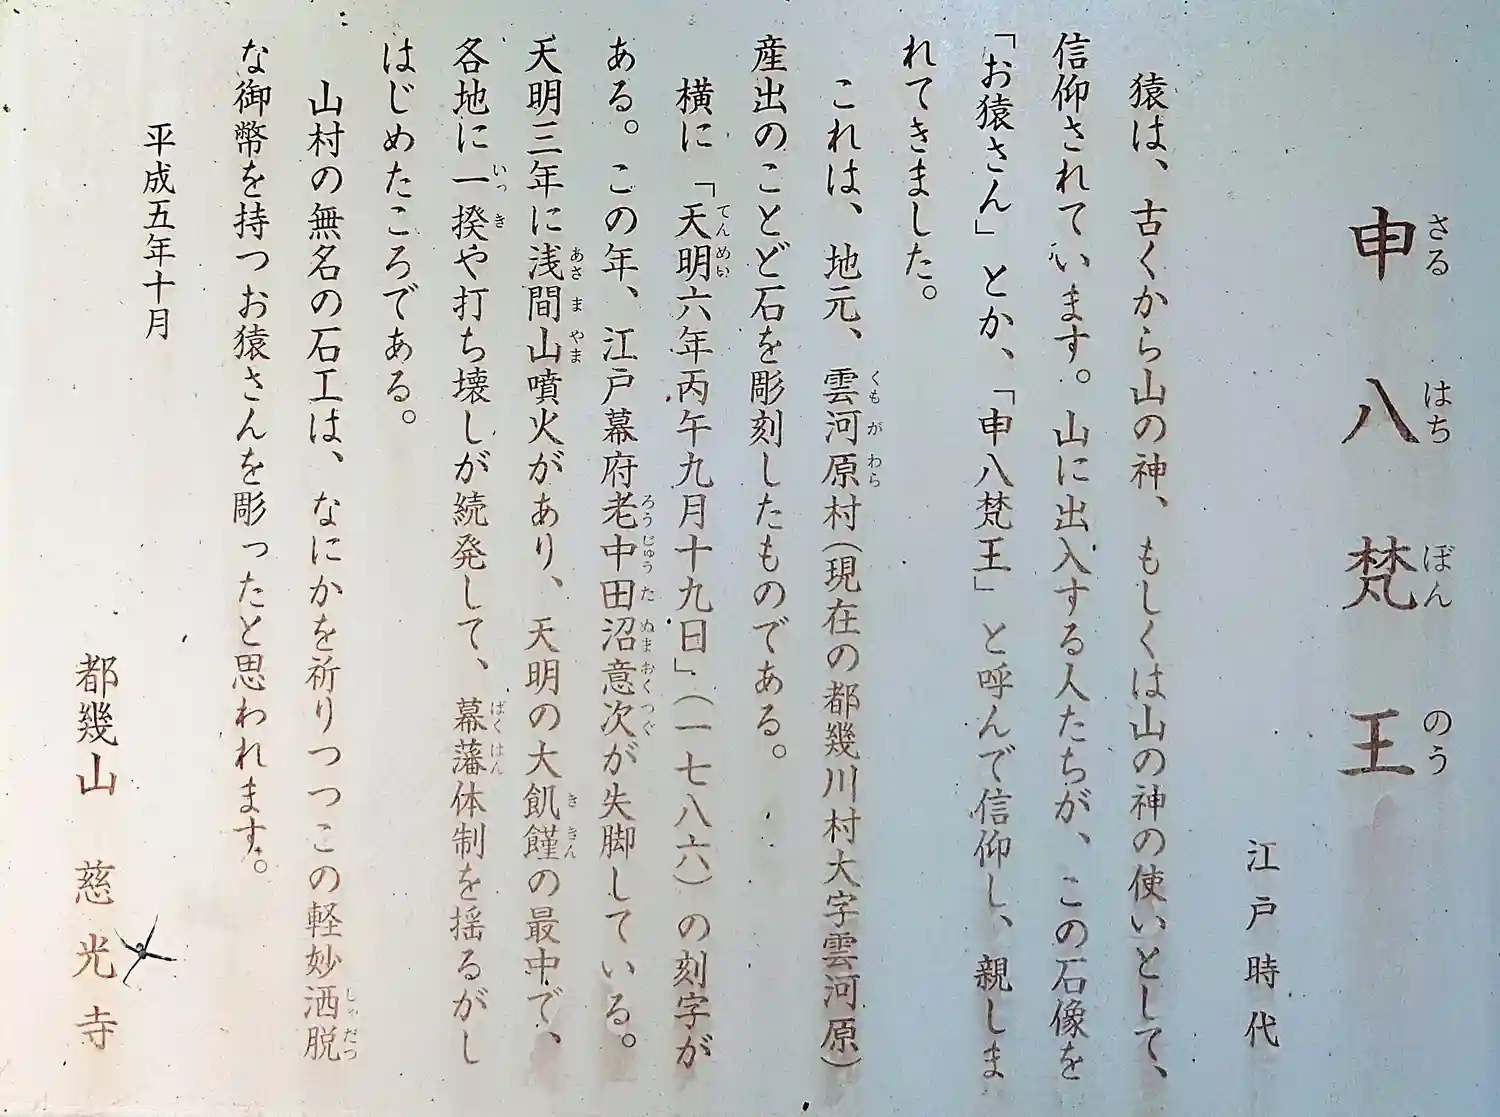 申八梵王
さる はち ぼん のう
江戸時代
猿は、古くから山の神、もしくは山の神の使いとして、
信仰されています。山に出入する人たちが、この石像を
「お猿さん」とか、「申八梵王」と呼んで信仰し、親しま
れてきました。
これは、地元、雲河原村(現在の都幾川村大字雲河原)
くもがわら
産出のことど石を彫刻したものである。
横に「天明六年丙午九月十九日」(一七八六)の刻字が
てんめい
ある。この年、江戸幕府老中田沼意次が失脚している。
ろうじゅう た ぬま おく つぐ
天明三年に浅間山噴火があり、天明の大飢饉の最中で、
あさ ま やま き きん
各地に一揆や打ち壊しが続発して、幕藩体制を揺るがし
いっ き ばく はん
はじめたころである。
山村の無名の石工は、なにかを祈りつつこの軽妙洒脱
しゃ だつ
な御幣を持つお猿さんを彫ったと思われます。
平成五年十月
都幾山 慈光寺